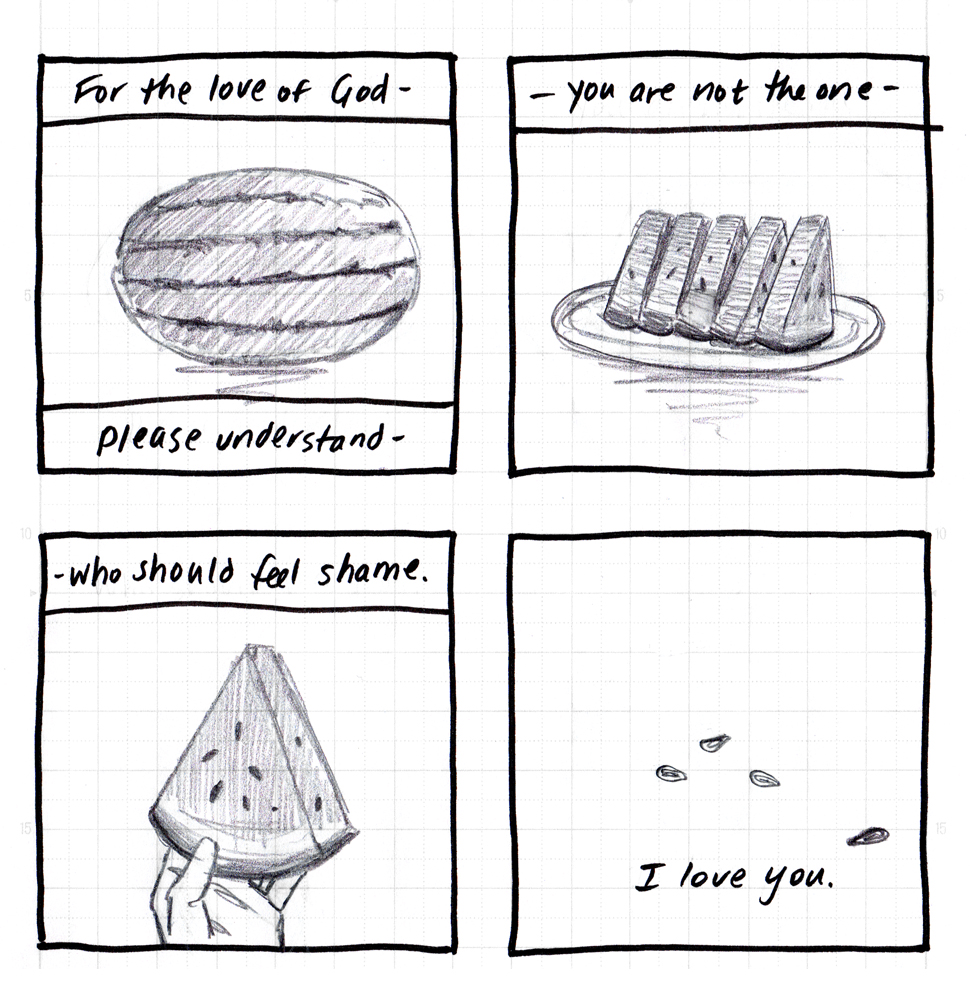 For the love of God -
please understand -
- you are not the one -
- who should feel shame.
I love you.